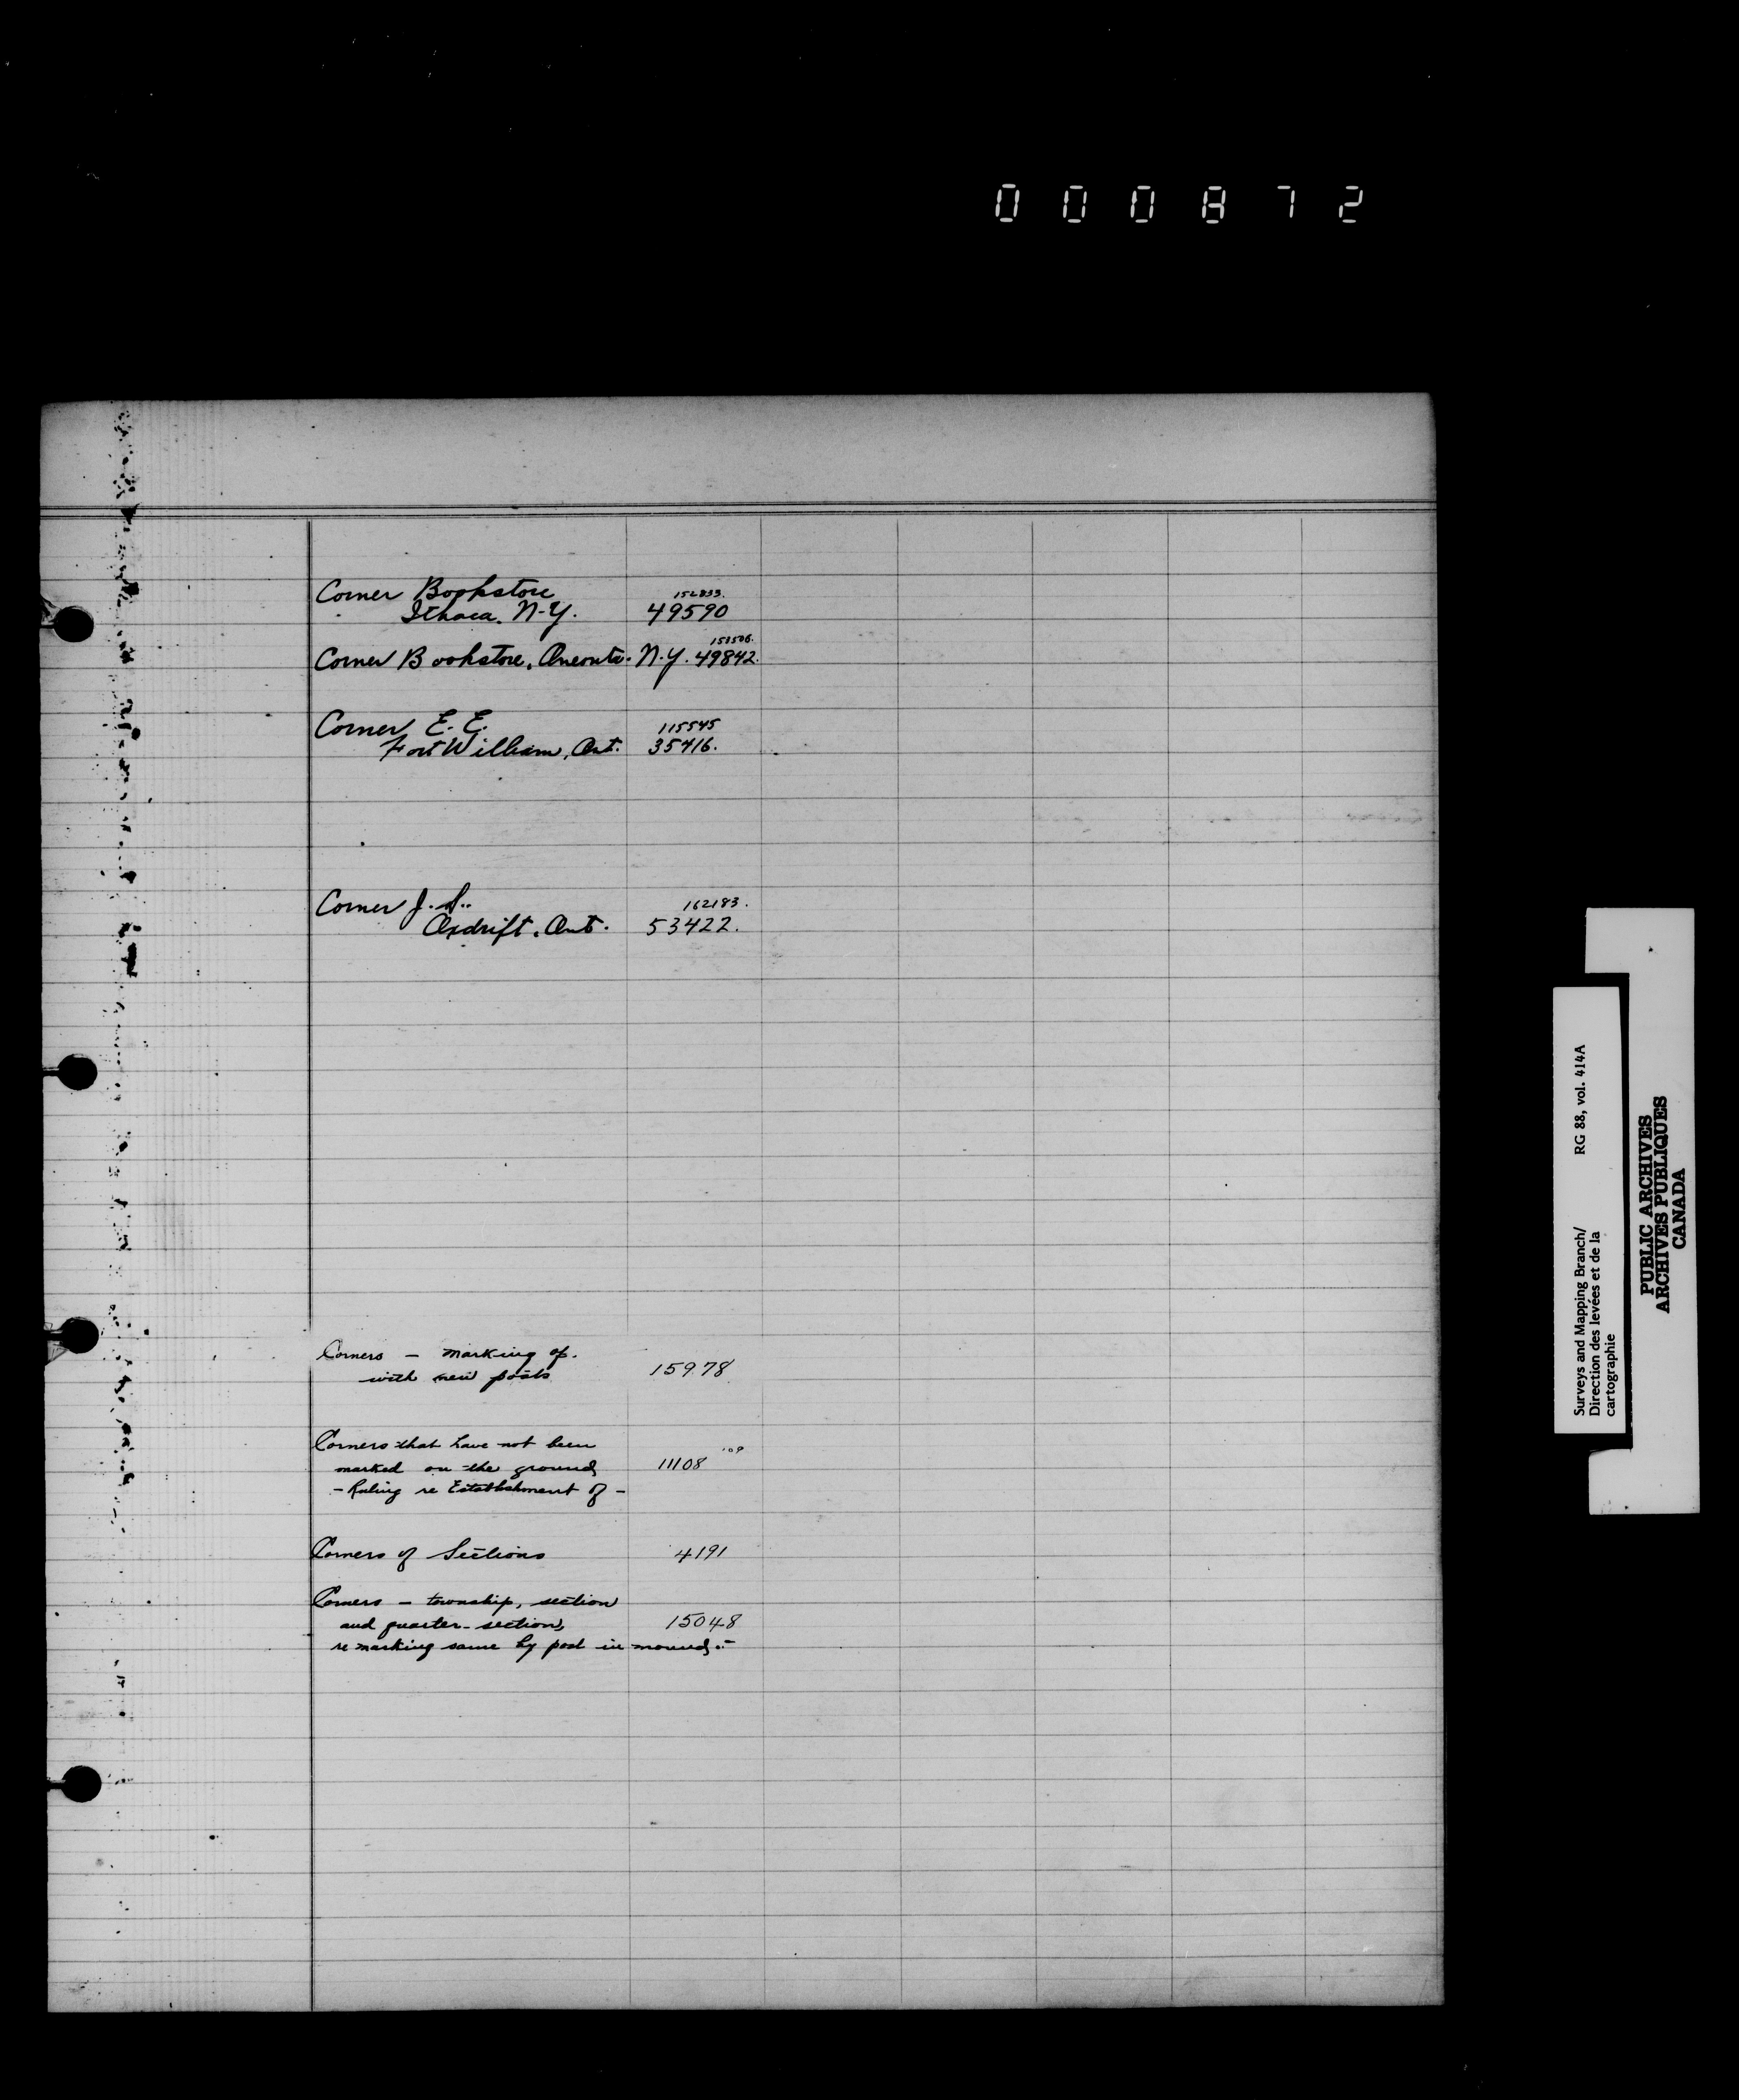 000872
Corner Bookstore 152833.
Ithaca. N-Y. 49590
153506.
Corner Bookstore, Oneonta. N.Y. 49842.
Corner E. E. 115545
Fort William, Ont. 35416.
Corner J. S. 162183.
Oxdrift. Ont. 53422.
Corners — marking of.
with new posts 15978
Corners that have not been
marked on the ground, 11108 109
- Ruling re Establishment of -
Corners of Sections 4191
Corners — township, section
and quarter-section, 15048
re marking same by post in mound.-
Surveys and Mapping Branch/ RG 88, vol. 414A
Direction des levées et de la
cartographie
PUBLIC ARCHIVES
ARCHIVES PUBLIQUES
CANADA